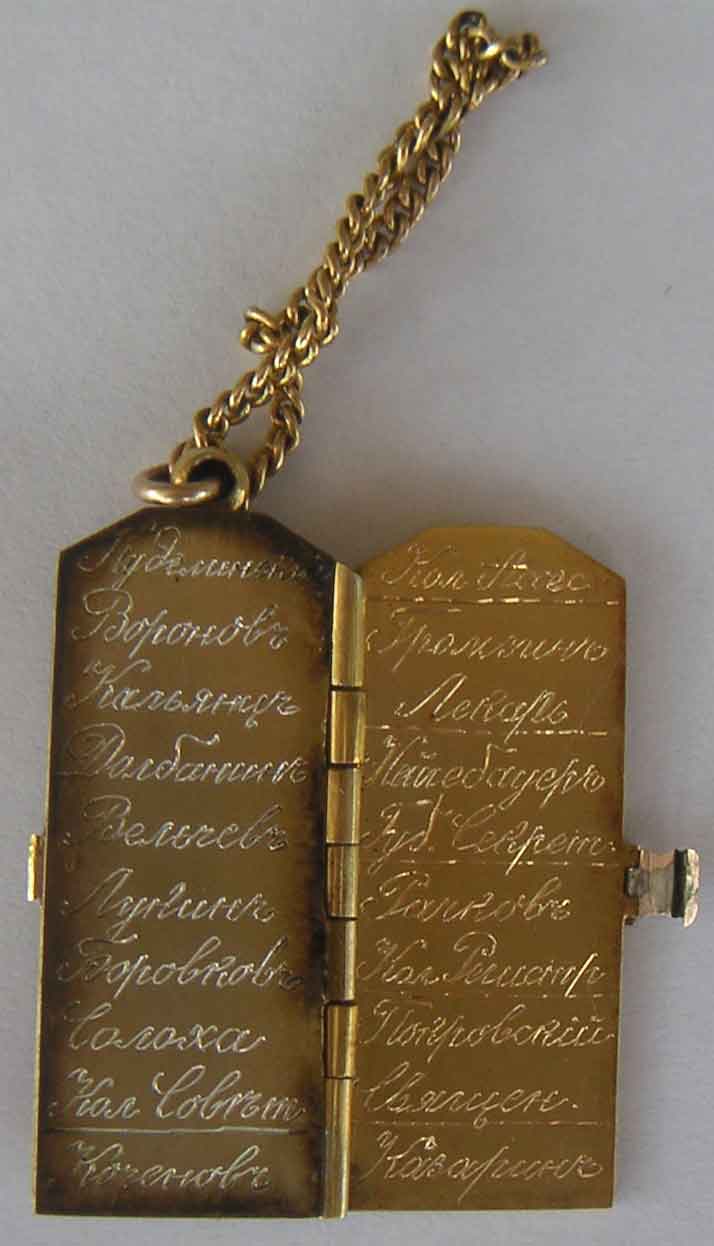 Куделинъ
Вороновъ
Кальянцъ
Долбанинъ
Вельчевъ
Лункинъ
Боровковъ
Солоха
Кол Совѣт
Коченовъ
Кол Ассес
Громзинъ
Лекарь
Нейебауеръ
Губ. Секрет.
Рачковъ
Кол Регистр
Покровскій
Священ.
Казаринъ